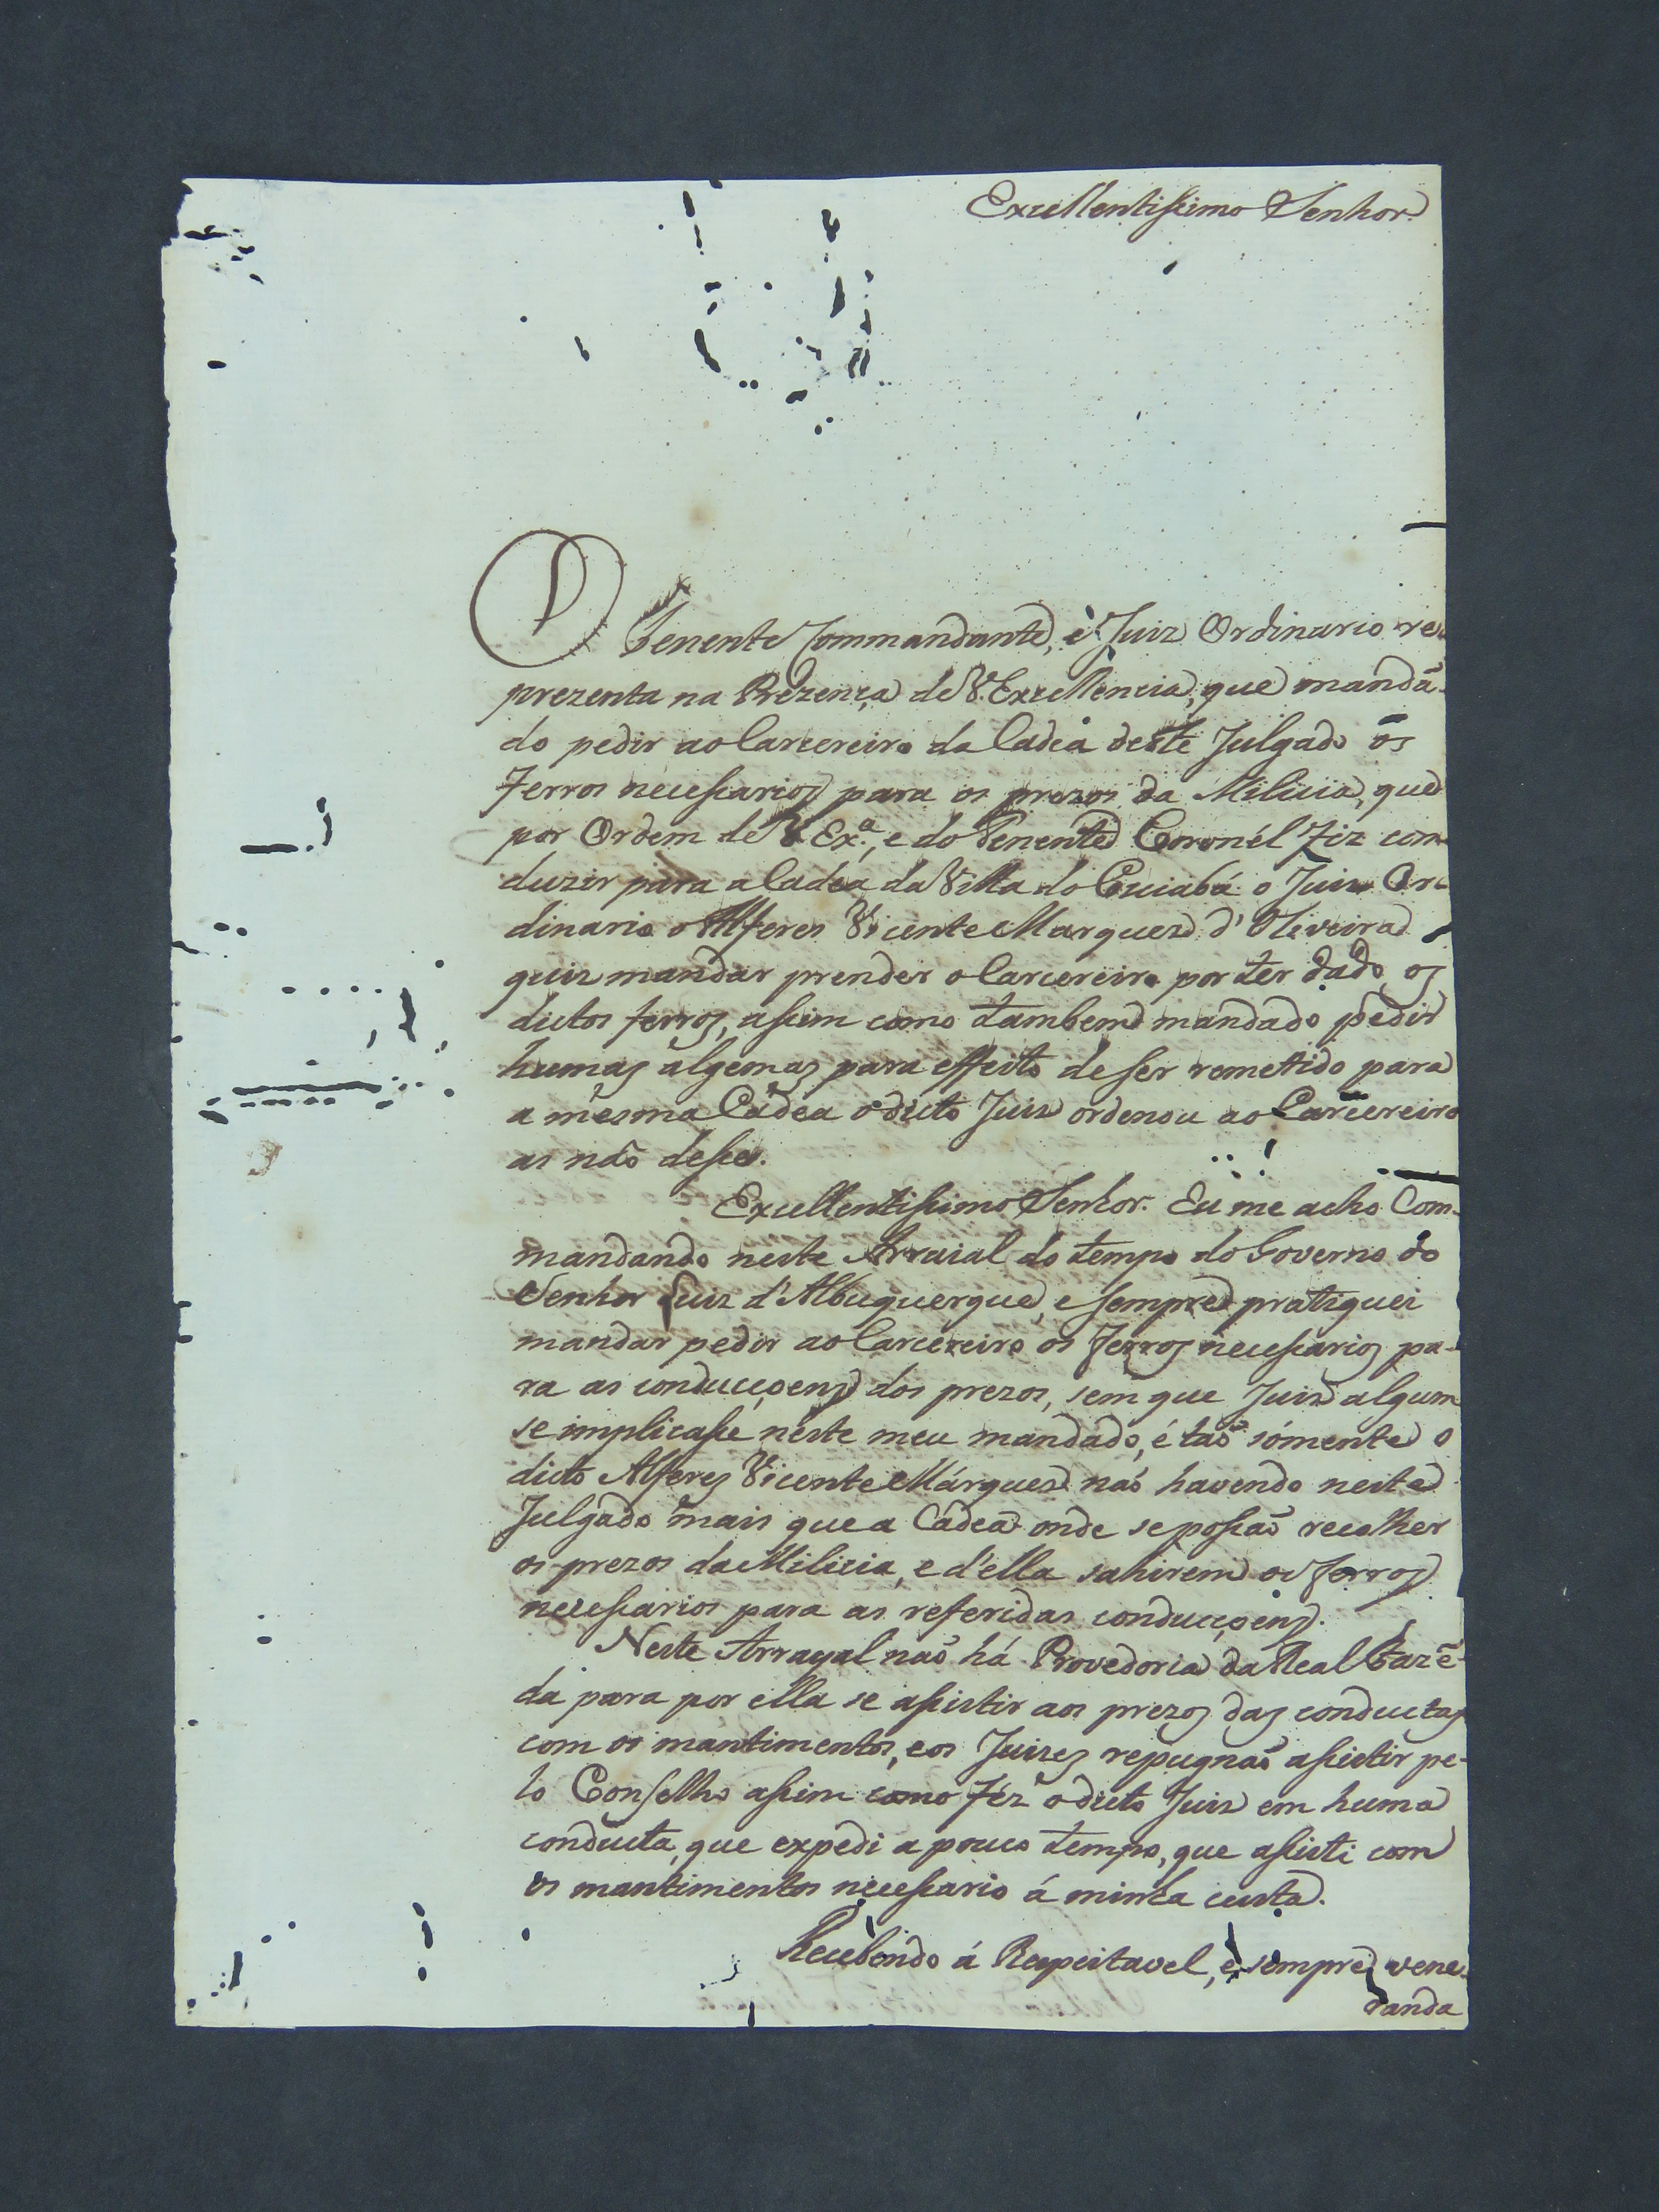 Excellentissimo Senhor.
O Tenente Commandante, e Juiz Ordinario re-
prezenta na Prezença de V. Excellencia, que mandã-
do pedir ao Carcereiro da Cadea deste Julgado os
Ferros necessarios para os prezos da Milicia, que
por Ordem de V Ex.ª, e do Tenente Coronél Fiz con-
duzir para a Cadêa da Villa do Cuiabá o Juiz Or-
dinario o Alferes Vicente Marques d'Oliveira
quiz mandar prender o Carcereiro por ter dado os
dictos ferros, assim como tambem mandado pedir
humas algemas para effeito de ser remetido para
a mesma Cadêa o dicto Juiz ordenou ao Carcereiro
as não desse.
Excellentissimo Senhor. Eu me acho Com-
mandando neste Arraial do tempo do Governo do
Senhor Luiz d'Albuquerque, e sempre pratiquei
mandar pedir ao Carcereiro os Ferros necessarios pa-
ra as conducçoens dos prezos, sem que Juiz algum
se implicasse neste meu mandado, é taõ sómente o
dicto Alferes Vicente Márques naõ havendo neste
Julgado mais que a Cadêa onde se possaõ recolher
os prezos da Milicia, e d'ella sahirem os Ferros
necessarios para as referidas conducçoens.
Neste Arrayal naõ há Provedoria da Real Fazẽ-
da para por ella se assistir aos prezos das conductas
com os mantimentos, e os Juizes repugnaõ assistir pe-
lo Conselho assim como féz o dicto Juiz em huma
conducta, que expedi a pouco tempo, que assisti com
os mantimentos necessario á minha custa.
Recebendo á Respeitavel, e sempre vene-
randa